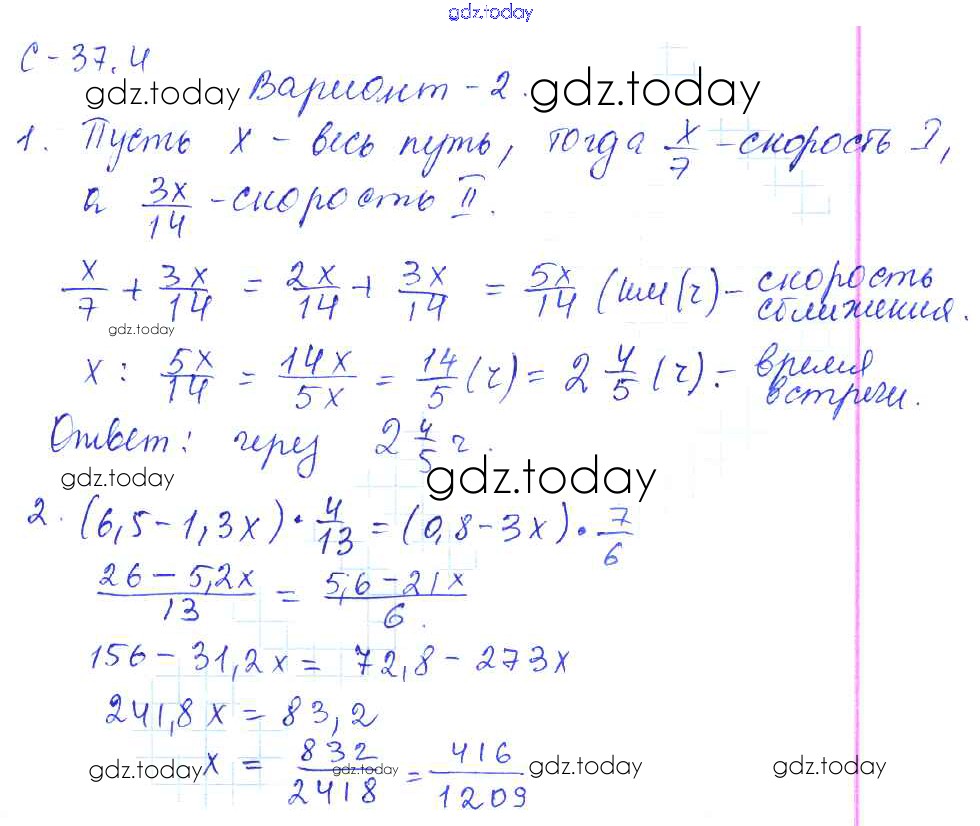 gdz.today
С-37.4
gdz.today Вариант-2. gdz.today
1. Пусть x - весь путь, тогда x/7 - скорость I,
а 3x/14 - скорость II.
x/7 + 3x/14 = 2x/14 + 3x/14 = 5x/14 (км/ч) - скорость сближения.
gdz.today
x : 5x/14 = 14x/5x = 14/5 (ч) = 2 4/5 (ч). - время встречи.
Ответ: через 2 4/5 ч.
gdz.today gdz.today
2. (6,5-1,3x) · 4/13 = (0,8-3x) · 7/6
26-5,2x/13 = 5,6-21x/6.
156-31,2x = 72,8-273x
241,8x = 83,2
x = 832/2418 = 416/1209
gdz.today gdz.today gdz.today gdz.today